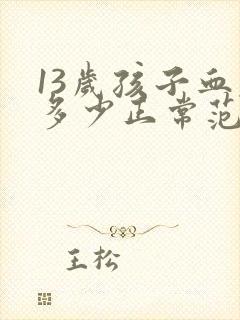 13歲孩子血
多少正常范
王松